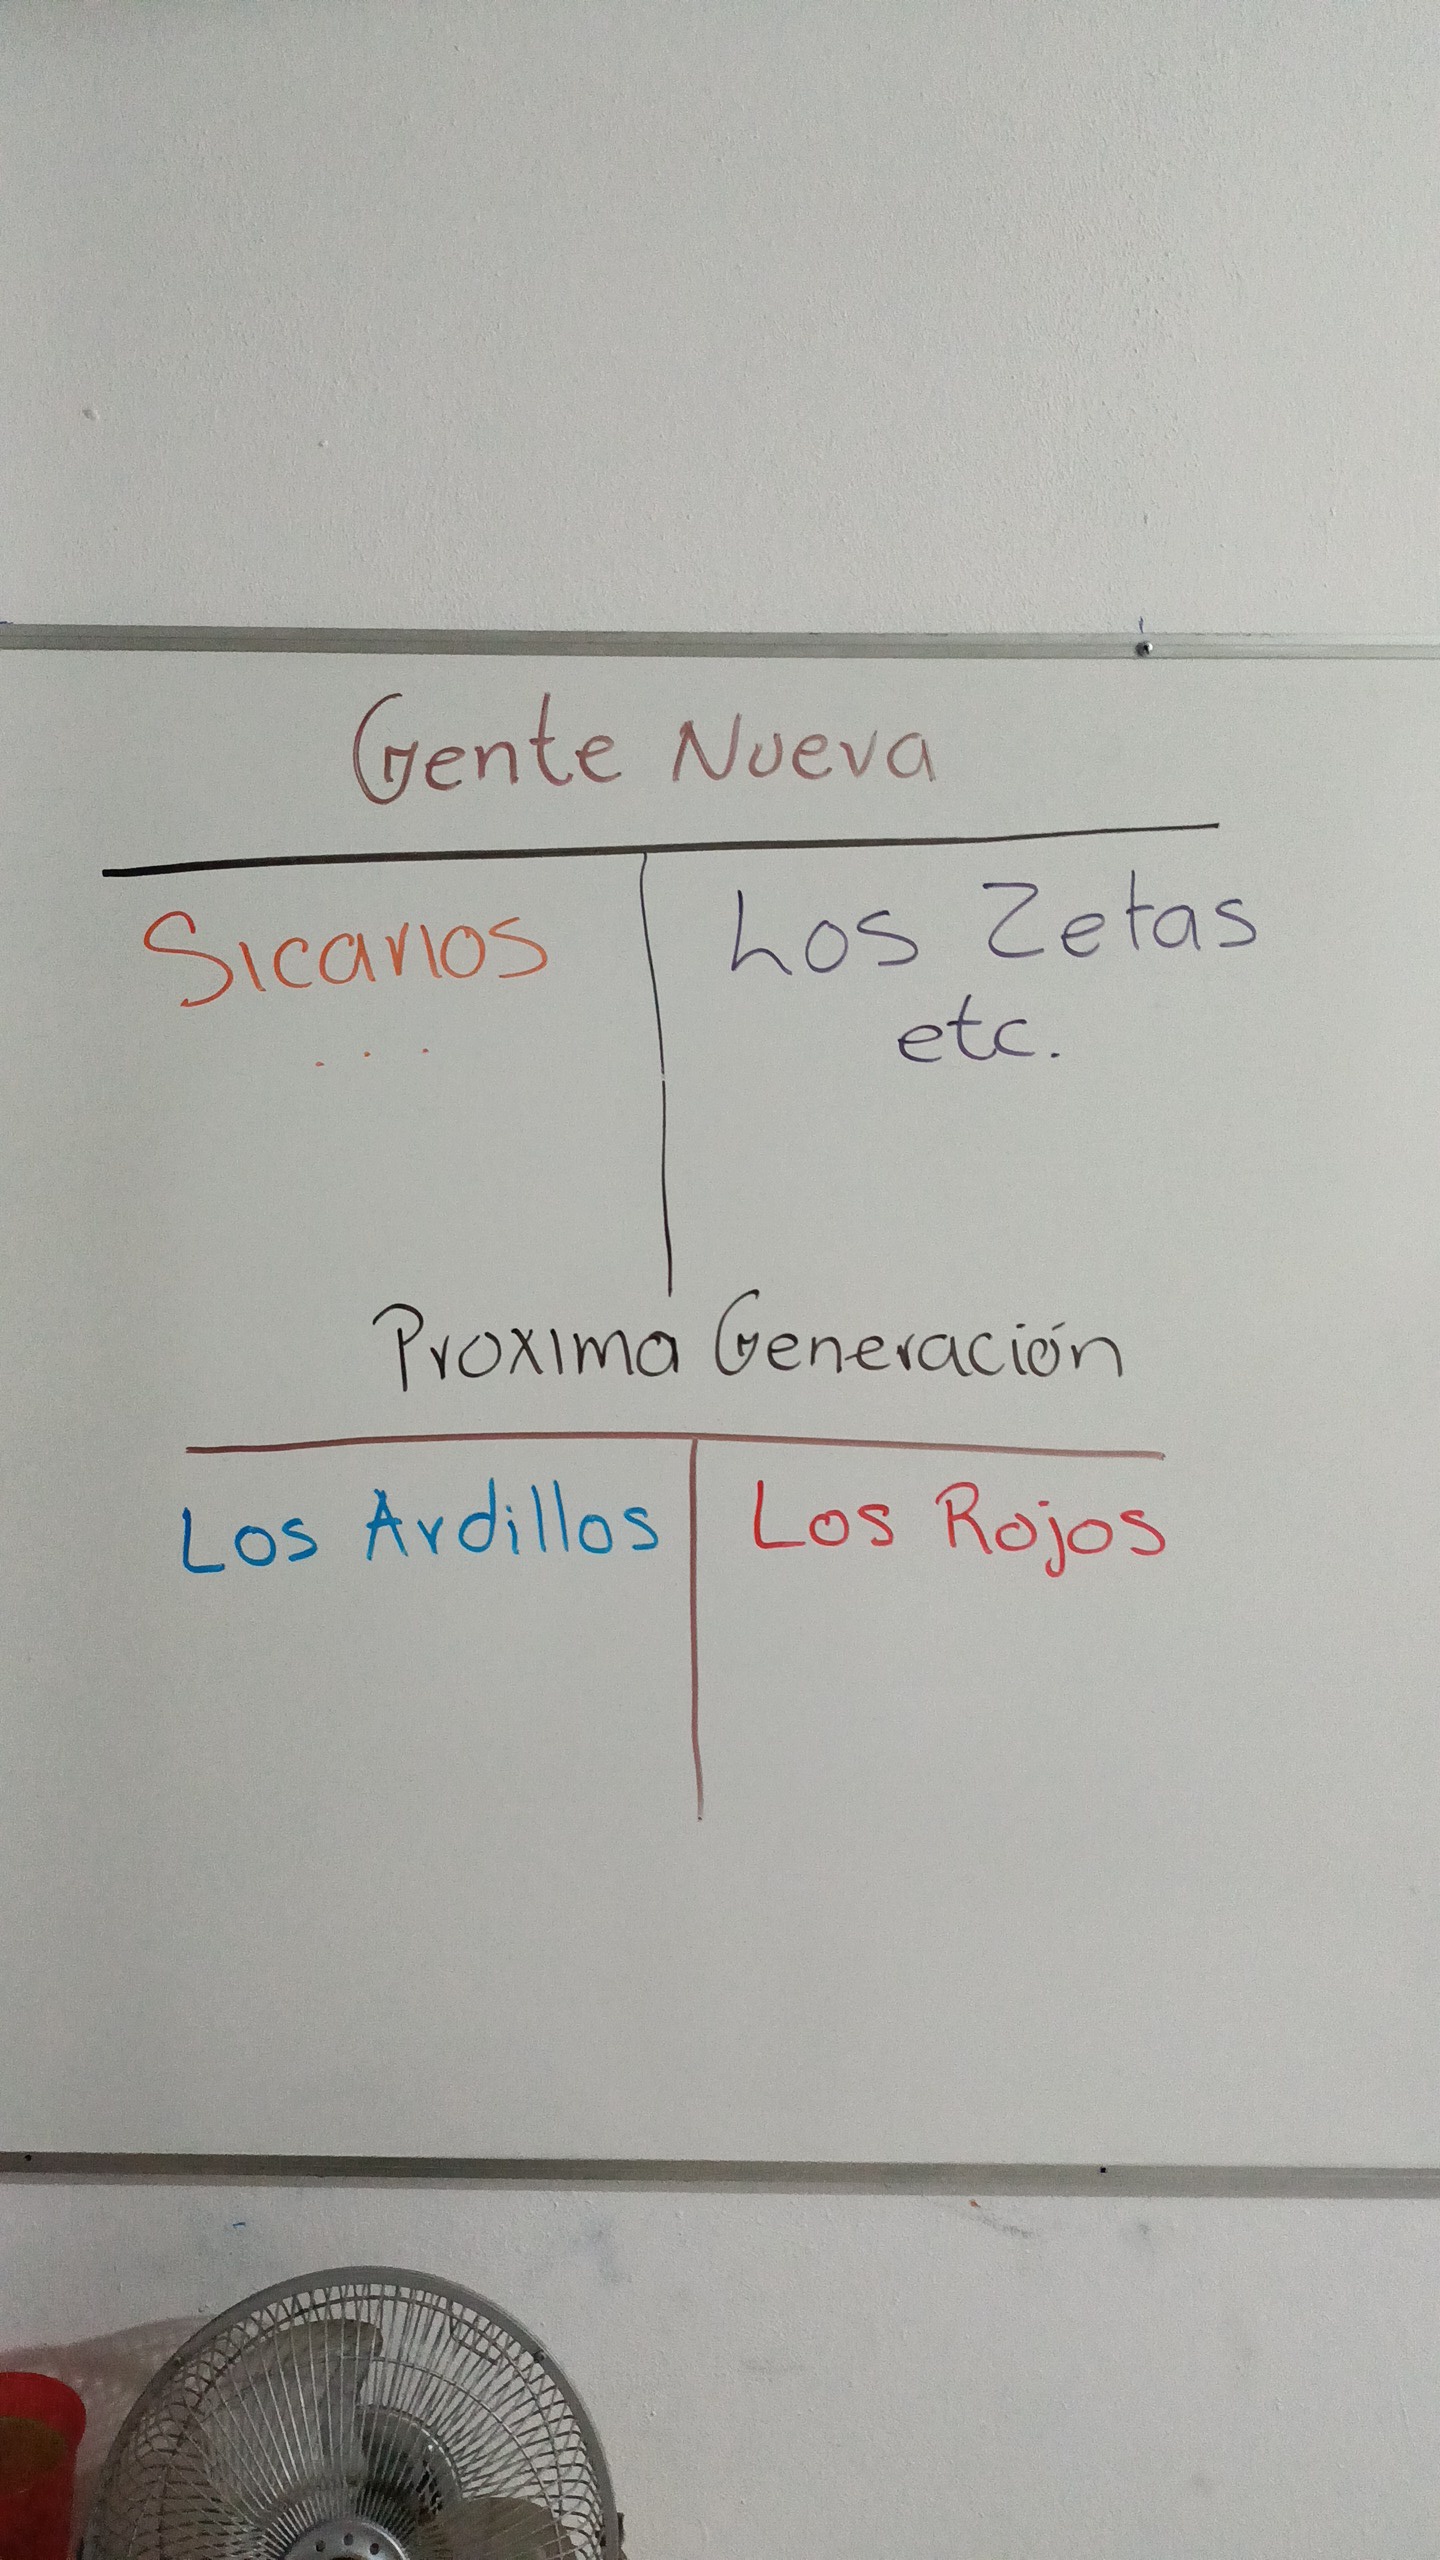 Gente Nueva
Sicarios
...
Los Zetas
etc.
Proxima Generación
Los Ardillos
Los Rojos